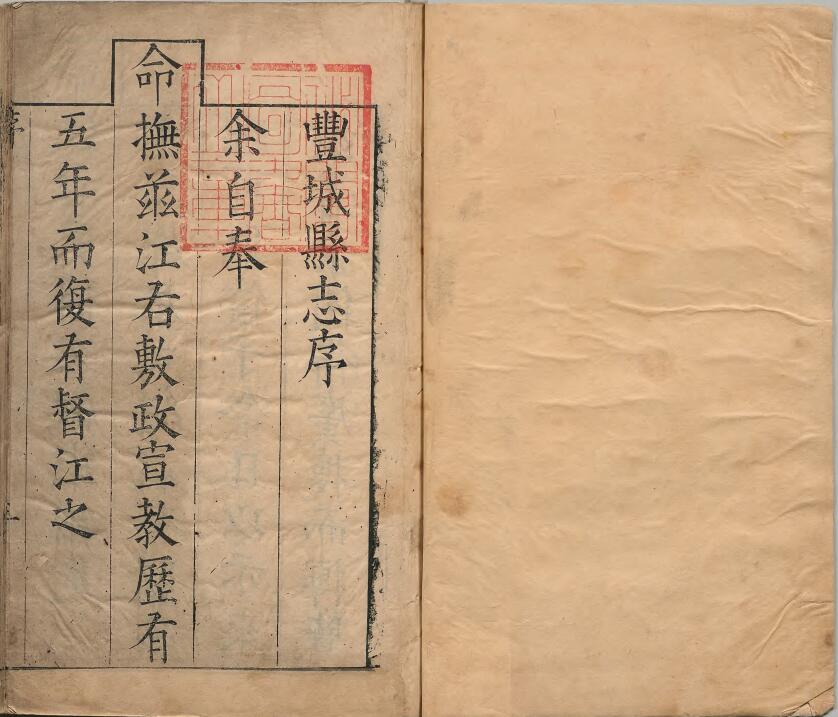 豐城縣志序
余自奉
命撫茲江右敷政宣教歷有
五年而復有督江之